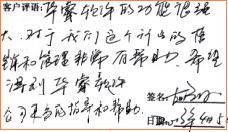 客户评语: 毕索软件的功能很强
大。对于我们这个行业的营
销和管理非常有帮助。希望
得到毕索软件
公司更多的指导和帮助。
签名:
日期: